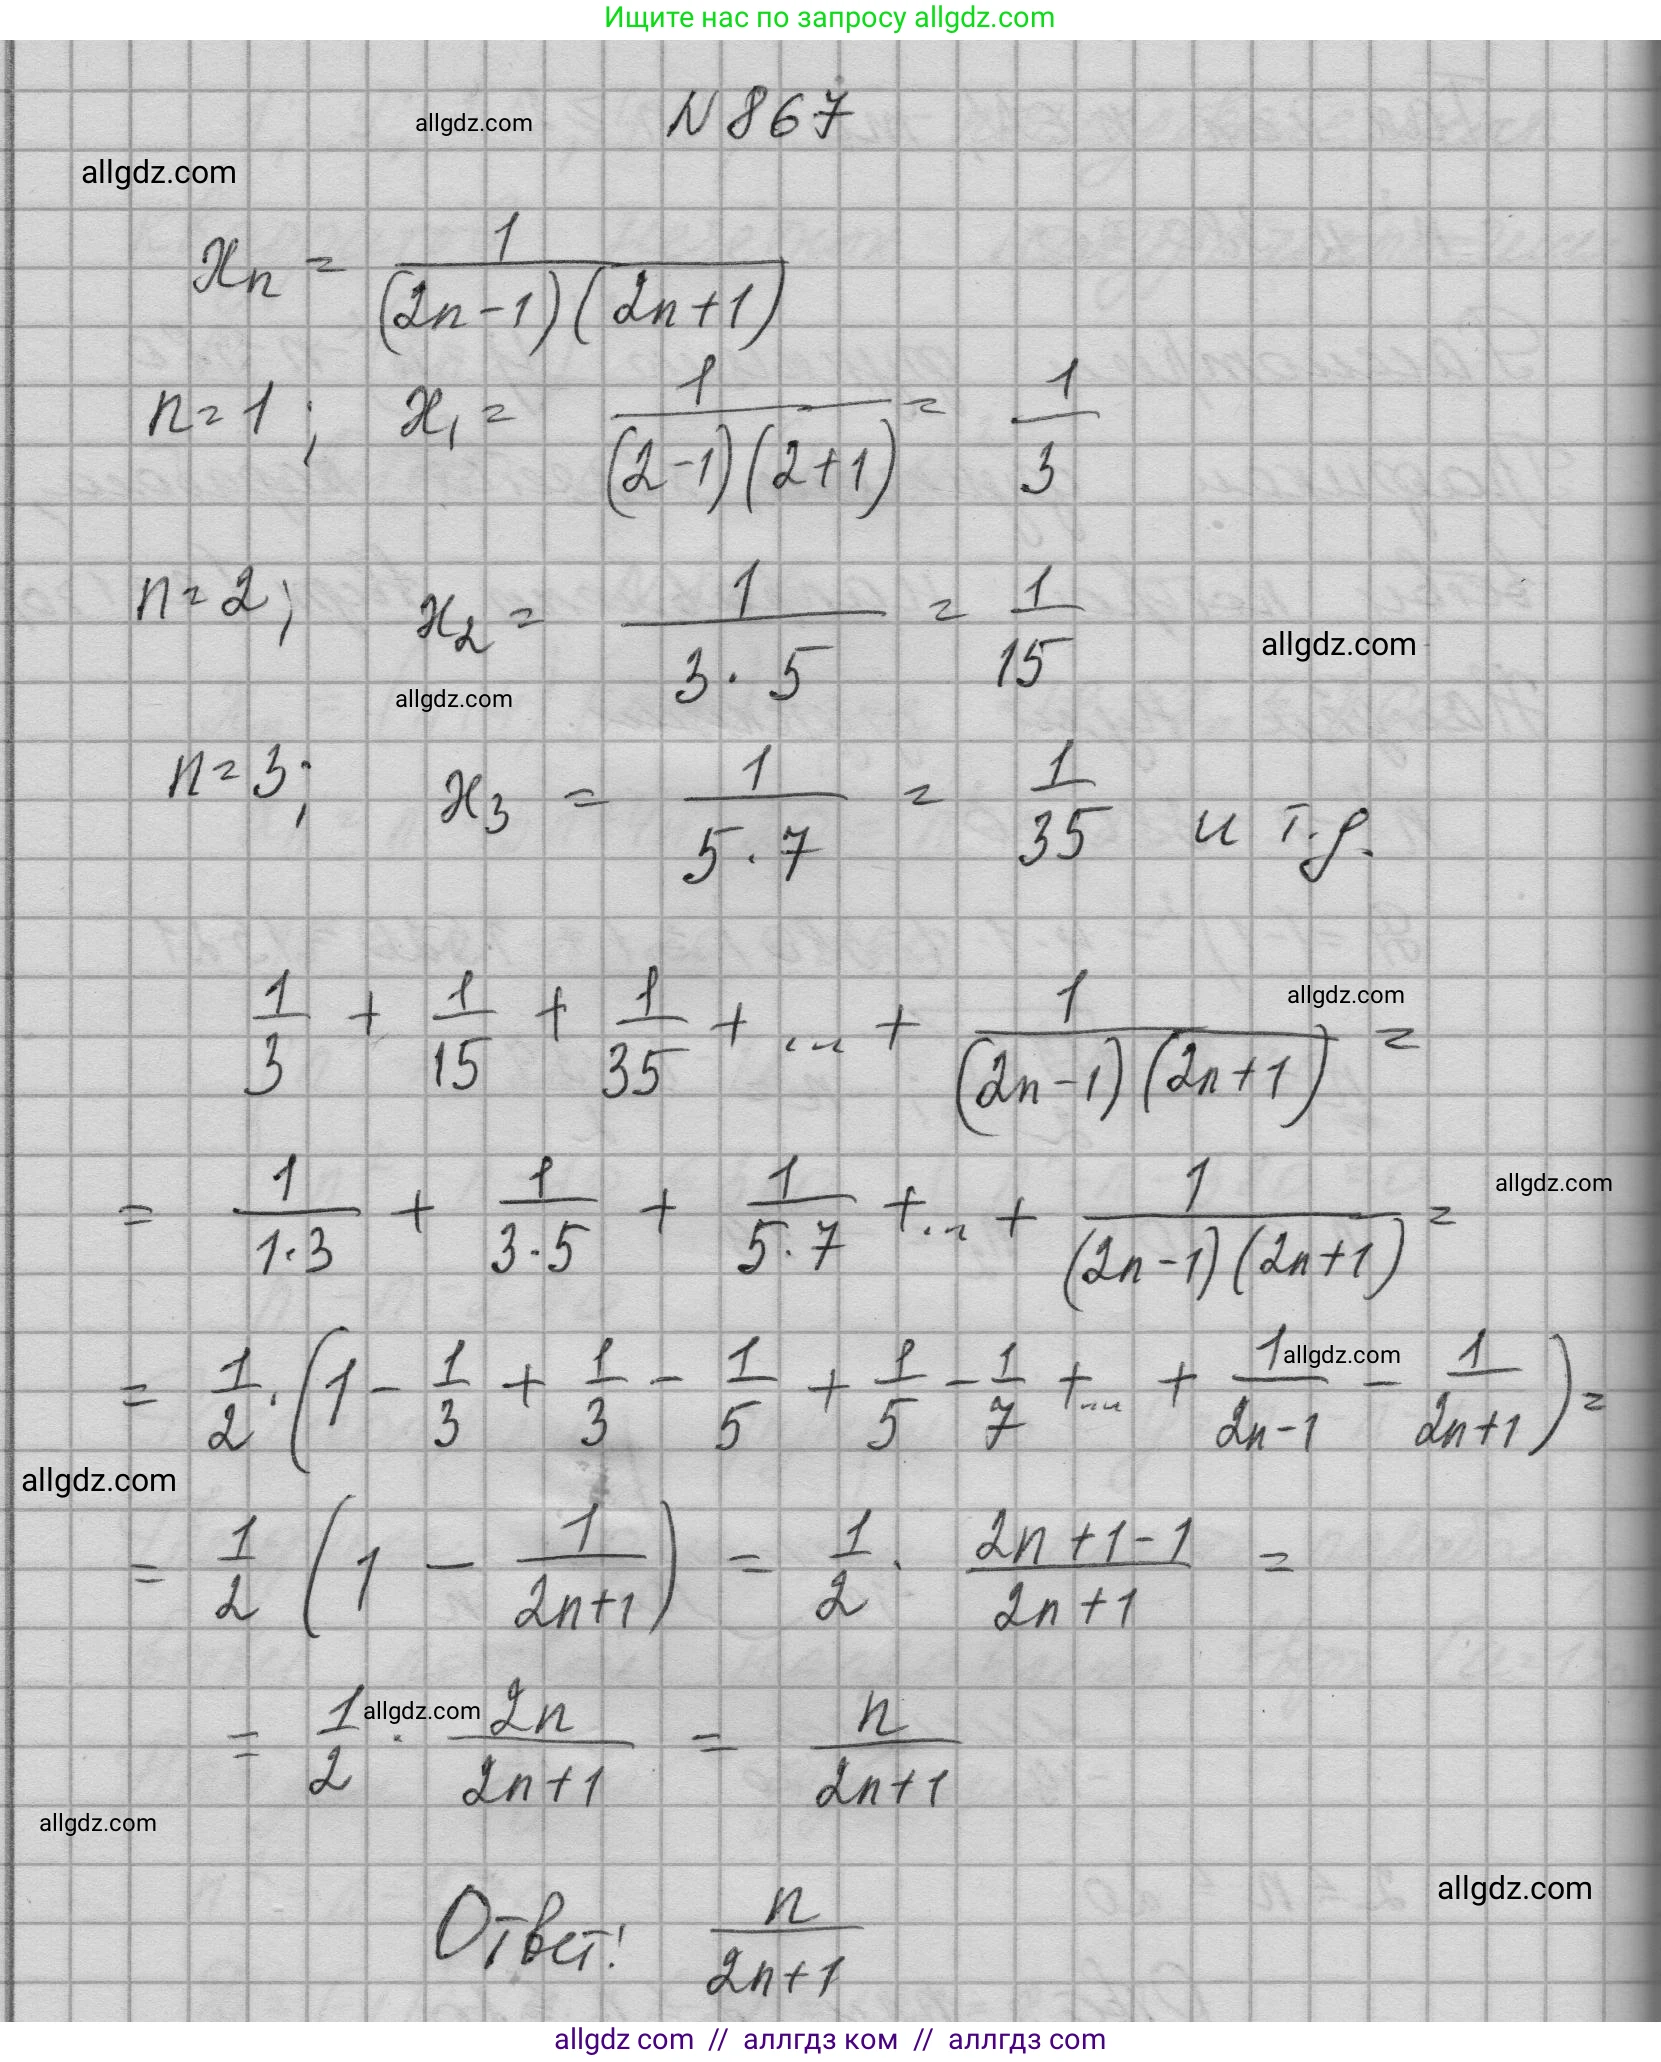 Ищите нас по запросу allgdz.com
N 867
allgdz.com
allgdz.com
xₙ = 1/((2n-1)(2n+1))
n=1; x₁ = 1/((2-1)(2+1)) = 1/3
n=2; x₂ = 1/(3·5) = 1/15
allgdz.com
allgdz.com
n=3; x₃ = 1/(5·7) = 1/35 и т.д.
1/3 + 1/15 + 1/35 + ... + 1/((2n-1)(2n+1)) =
allgdz.com
= 1/(1·3) + 1/(3·5) + 1/(5·7) + ... + 1/((2n-1)(2n+1)) =
allgdz.com
= 1/2 · (1 - 1/3 + 1/3 - 1/5 + 1/5 - 1/7 + ... + 1/(2n-1) - 1/(2n+1)) =
allgdz.com
allgdz.com
= 1/2 (1 - 1/(2n+1)) = 1/2 · (2n+1-1)/(2n+1) =
= 1/2 · 2n/(2n+1) = n/(2n+1)
allgdz.com
allgdz.com
allgdz.com
Ответ: n/(2n+1)
allgdz com // аллгдз ком // аллгдз com